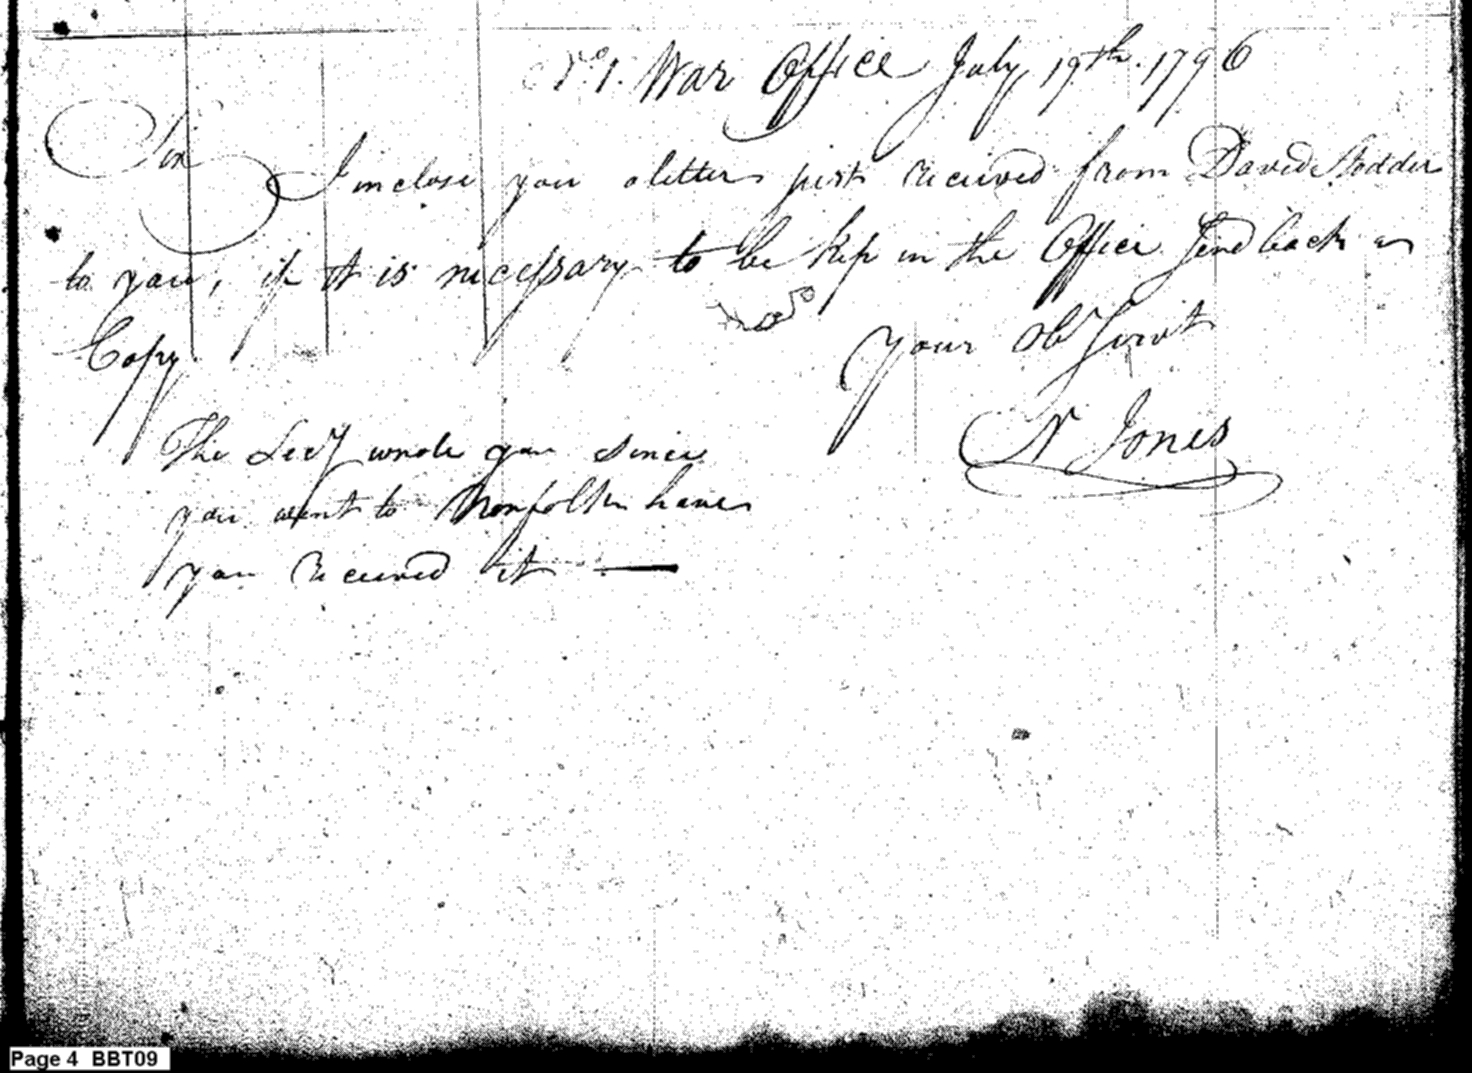 No. 1. War Office July 19th. 1796
Sir
I inclose you a letter just received from David Stodder
to you, if it is necessary to be kep in the Office Send back a
Copy
Your Obt Servt
N Jones
The Secy wrote you since
you went to Norfolk have
you received it —
Page 4 BBT09